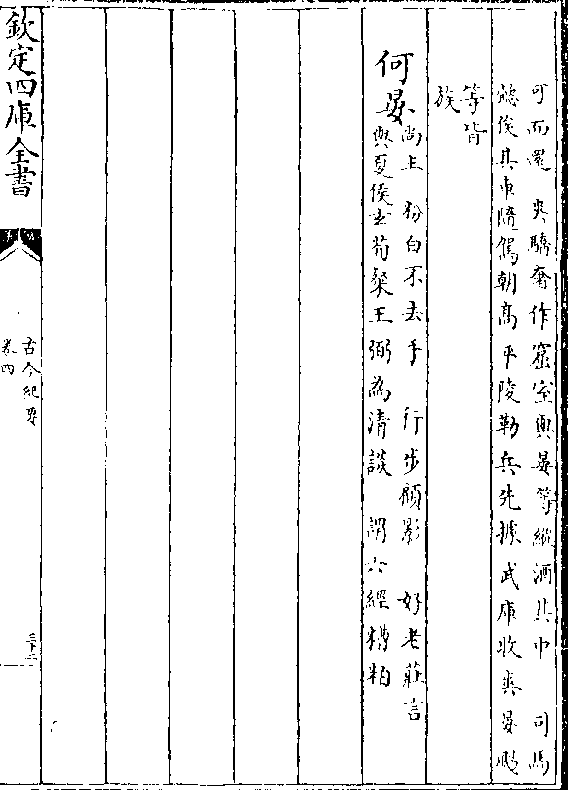 可而還　爽驕奢作窟室與晏等縱酒其中　司馬
懿俟其車隨駕朝高平陵勒兵先據武庫收爽晏颺
等皆
族
何晏
尚主　粉白不去手　行步顧影　好老莊言
與夏侯玄荀粲王弼為清談　謂六經糟粕
欽定四庫全書
古今紀要
卷四
三十二